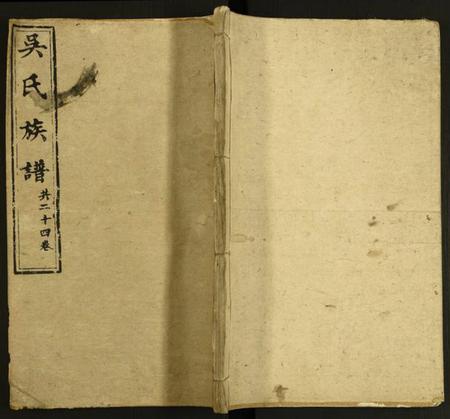 吳氏族譜
共二十四卷